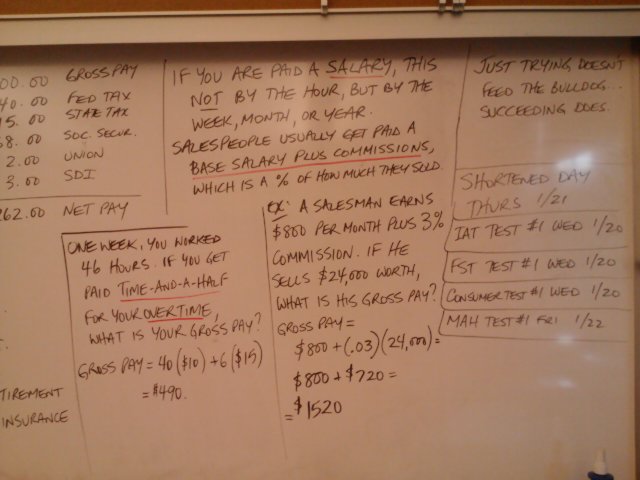 00.00 GROSS PAY
40.00 FED TAX
5.00 STATE TAX
8.00 SOC. SECUR.
2.00 UNION
3.00 SDI
262.00 NET PAY
IF YOU ARE PAID A SALARY, THIS
NOT BY THE HOUR, BUT BY THE
WEEK, MONTH, OR YEAR.
SALESPEOPLE USUALLY GET PAID A
BASE SALARY PLUS COMMISSIONS,
WHICH IS A % OF HOW MUCH THEY SOLD.
JUST TRYING DOESN'T
FEED THE BULLDOG...
SUCCEEDING DOES.
SHORTENED DAY
THURS 1/21
IAT TEST #1 WED 1/20
FST TEST #1 WED 1/20
CONSUMER TEST #1 WED 1/20
MAH TEST #1 FRI 1/22
ONE WEEK, YOU WORKED
46 HOURS. IF YOU GET
PAID TIME-AND-A-HALF
FOR YOUR OVERTIME,
WHAT IS YOUR GROSS PAY?
GROSS PAY = 40($10) + 6($15)
= $490.
EX: A SALESMAN EARNS
$800 PER MONTH PLUS 3%
COMMISSION. IF HE
SELLS $24,000 WORTH,
WHAT IS HIS GROSS PAY?
GROSS PAY =
$800 + (.03)(24,000) =
$800 + $720 =
= $1520
TIREMENT
INSURANCE